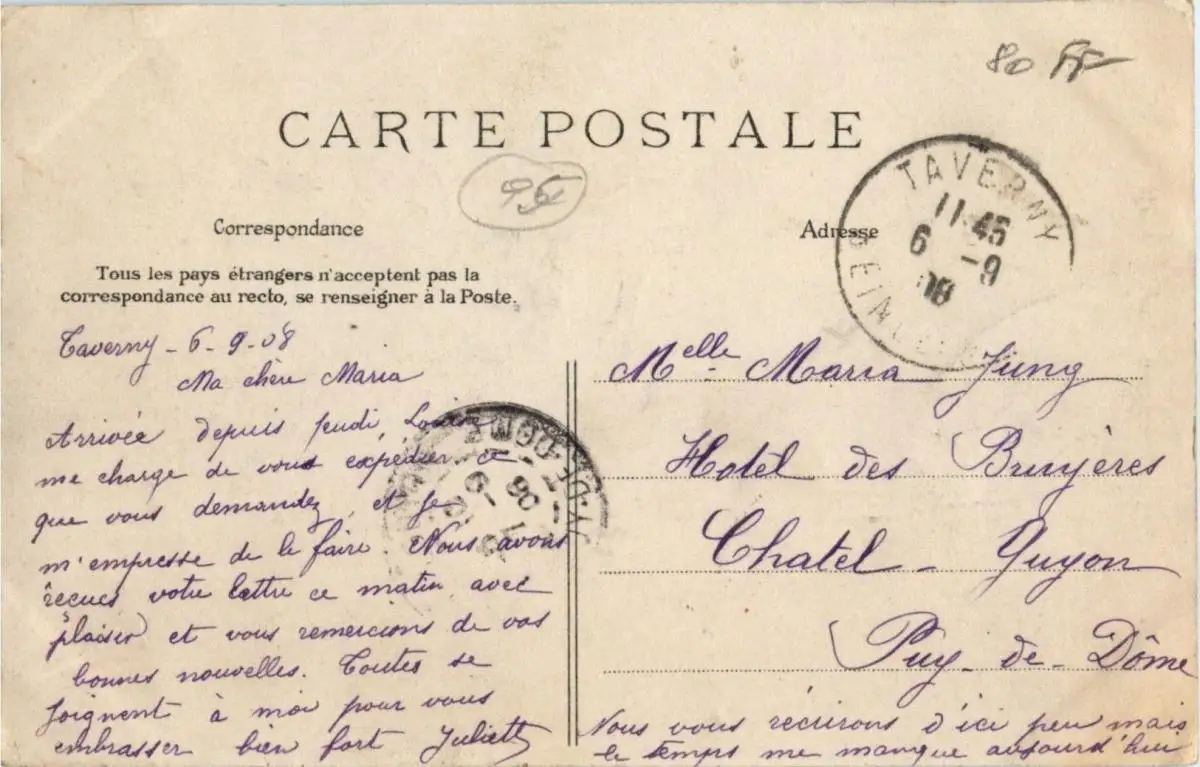 80 FF
CARTE POSTALE
95
Correspondance
Adresse
Tous les pays étrangers n'acceptent pas la
correspondance au recto, se renseigner à la Poste.
TAVERNY
11 45
6 -9
08
SEINE
Taverny - 6 - 9 - 08
Ma chère Maria
Arrivée depuis jeudi,
me charge de vous expédier ce
que vous demandez, et je
m'empresse de le faire. Nous avons
reçues votre lettre ce matin avec
plaisir et vous remercions de vos
bonnes nouvelles. Toutes se
joignent à moi pour vous
embrasser bien fort Juliette
Y-DE-DOME
-9
08
Melle Maria Jung
Hotel des Bruyères
Chatel - Guyon
Puy - de - Dôme
Nous vous récrirons d'ici peu mais
le temps me manque aujourd'hui